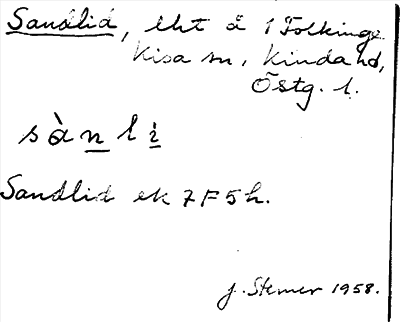 Sandlid, lht å 1 Folkinge
Kisa sn, Kinda hd,
Östg. l.
sànli
Sandlid ek 7F5h.
J. Stemer 1958.